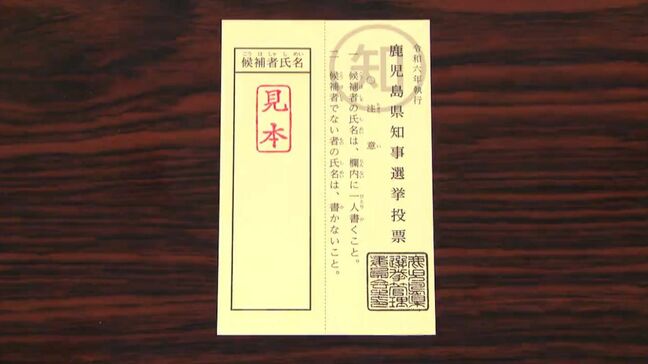 令和六年執行
鹿児島県知事選挙投票
知
◎注意
一 候補者の氏名は、欄内に一人書くこと。
二 候補者でない者の氏名は、書かないこと。
鹿児島県
選挙管理
委員会之印
候補者氏名
こうほしゃしめい
見本